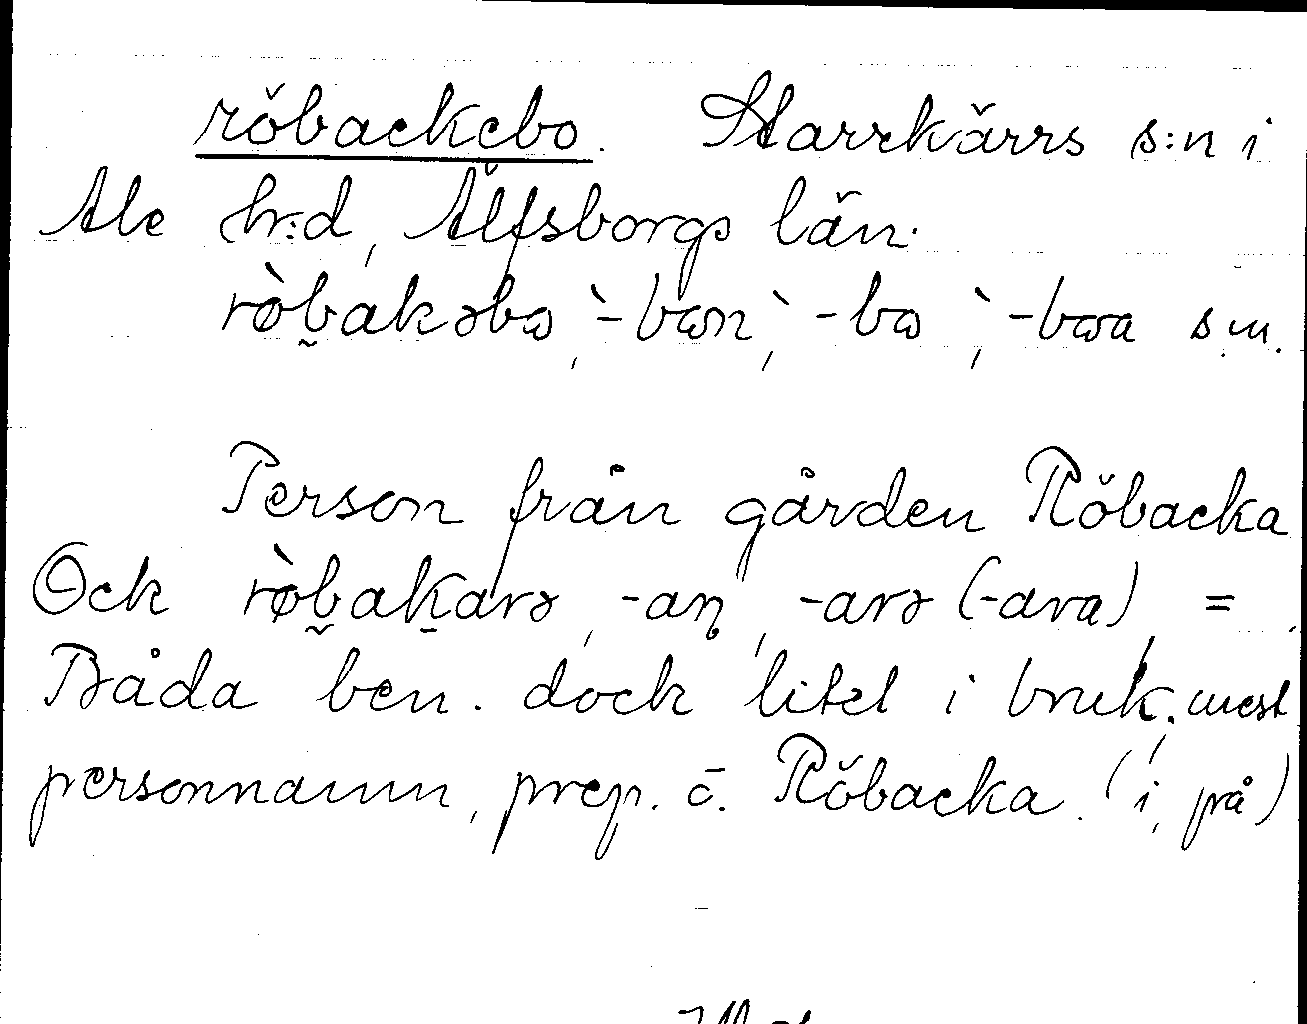 röbackebo. Starrkärrs s:n i
Ale hr:d, Älfsborgs län.
rø̀b̰akəbɷ, ̀-bɷn, ̀-bɷ, ̀-bɷa s.m.
Person från gården Röbacka
Ock rø̀b̰aḵarə, -aṇ, -arə (-ara), =
Båda ben. dock litet i bruk, mest
personnamn, prep. o. Röbacka. (i, på)